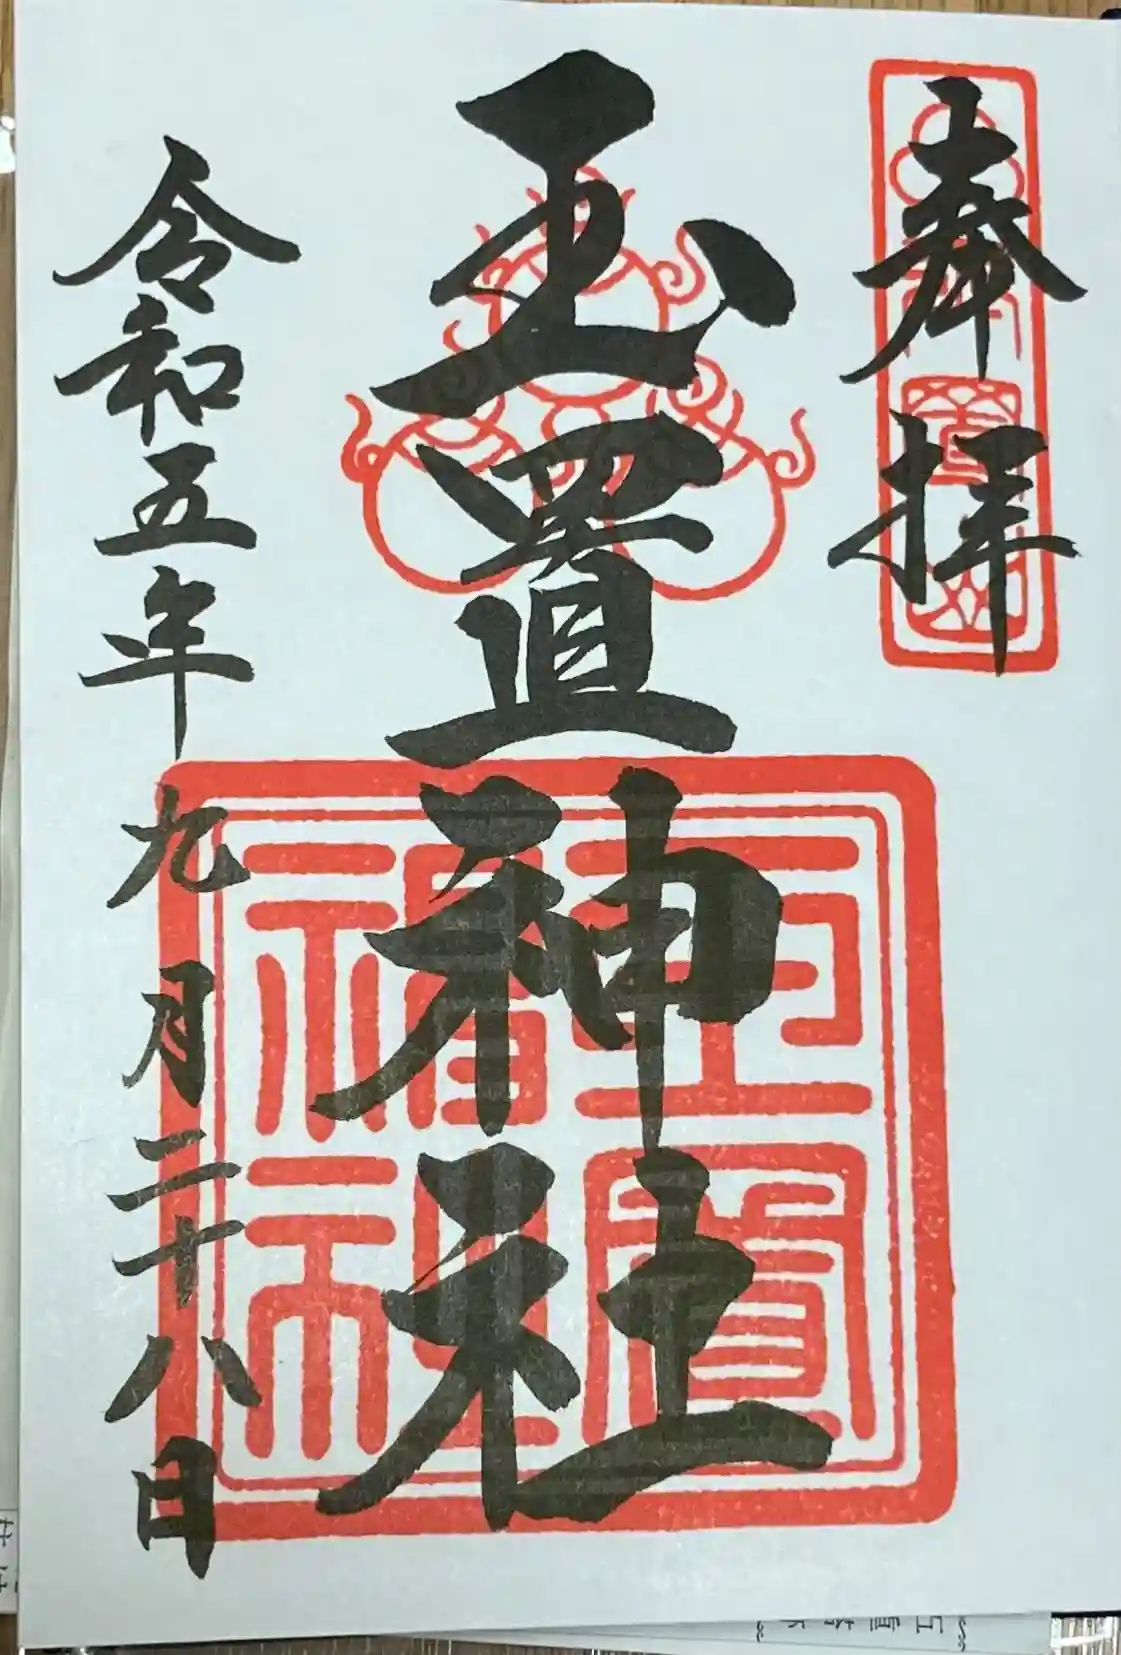 奉拝
玉置神社
令和五年九月二十八日